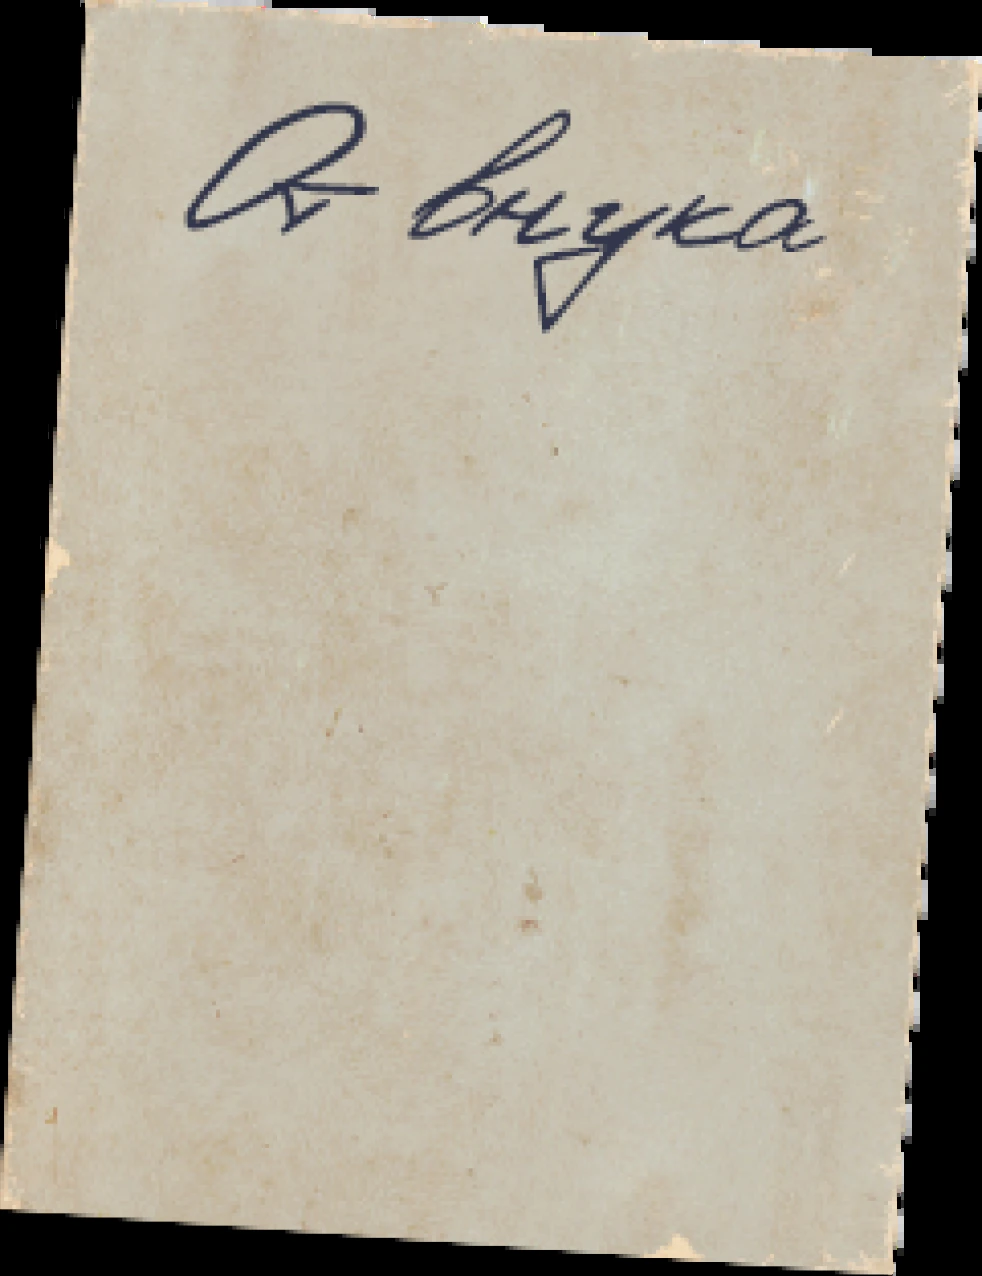 От внука